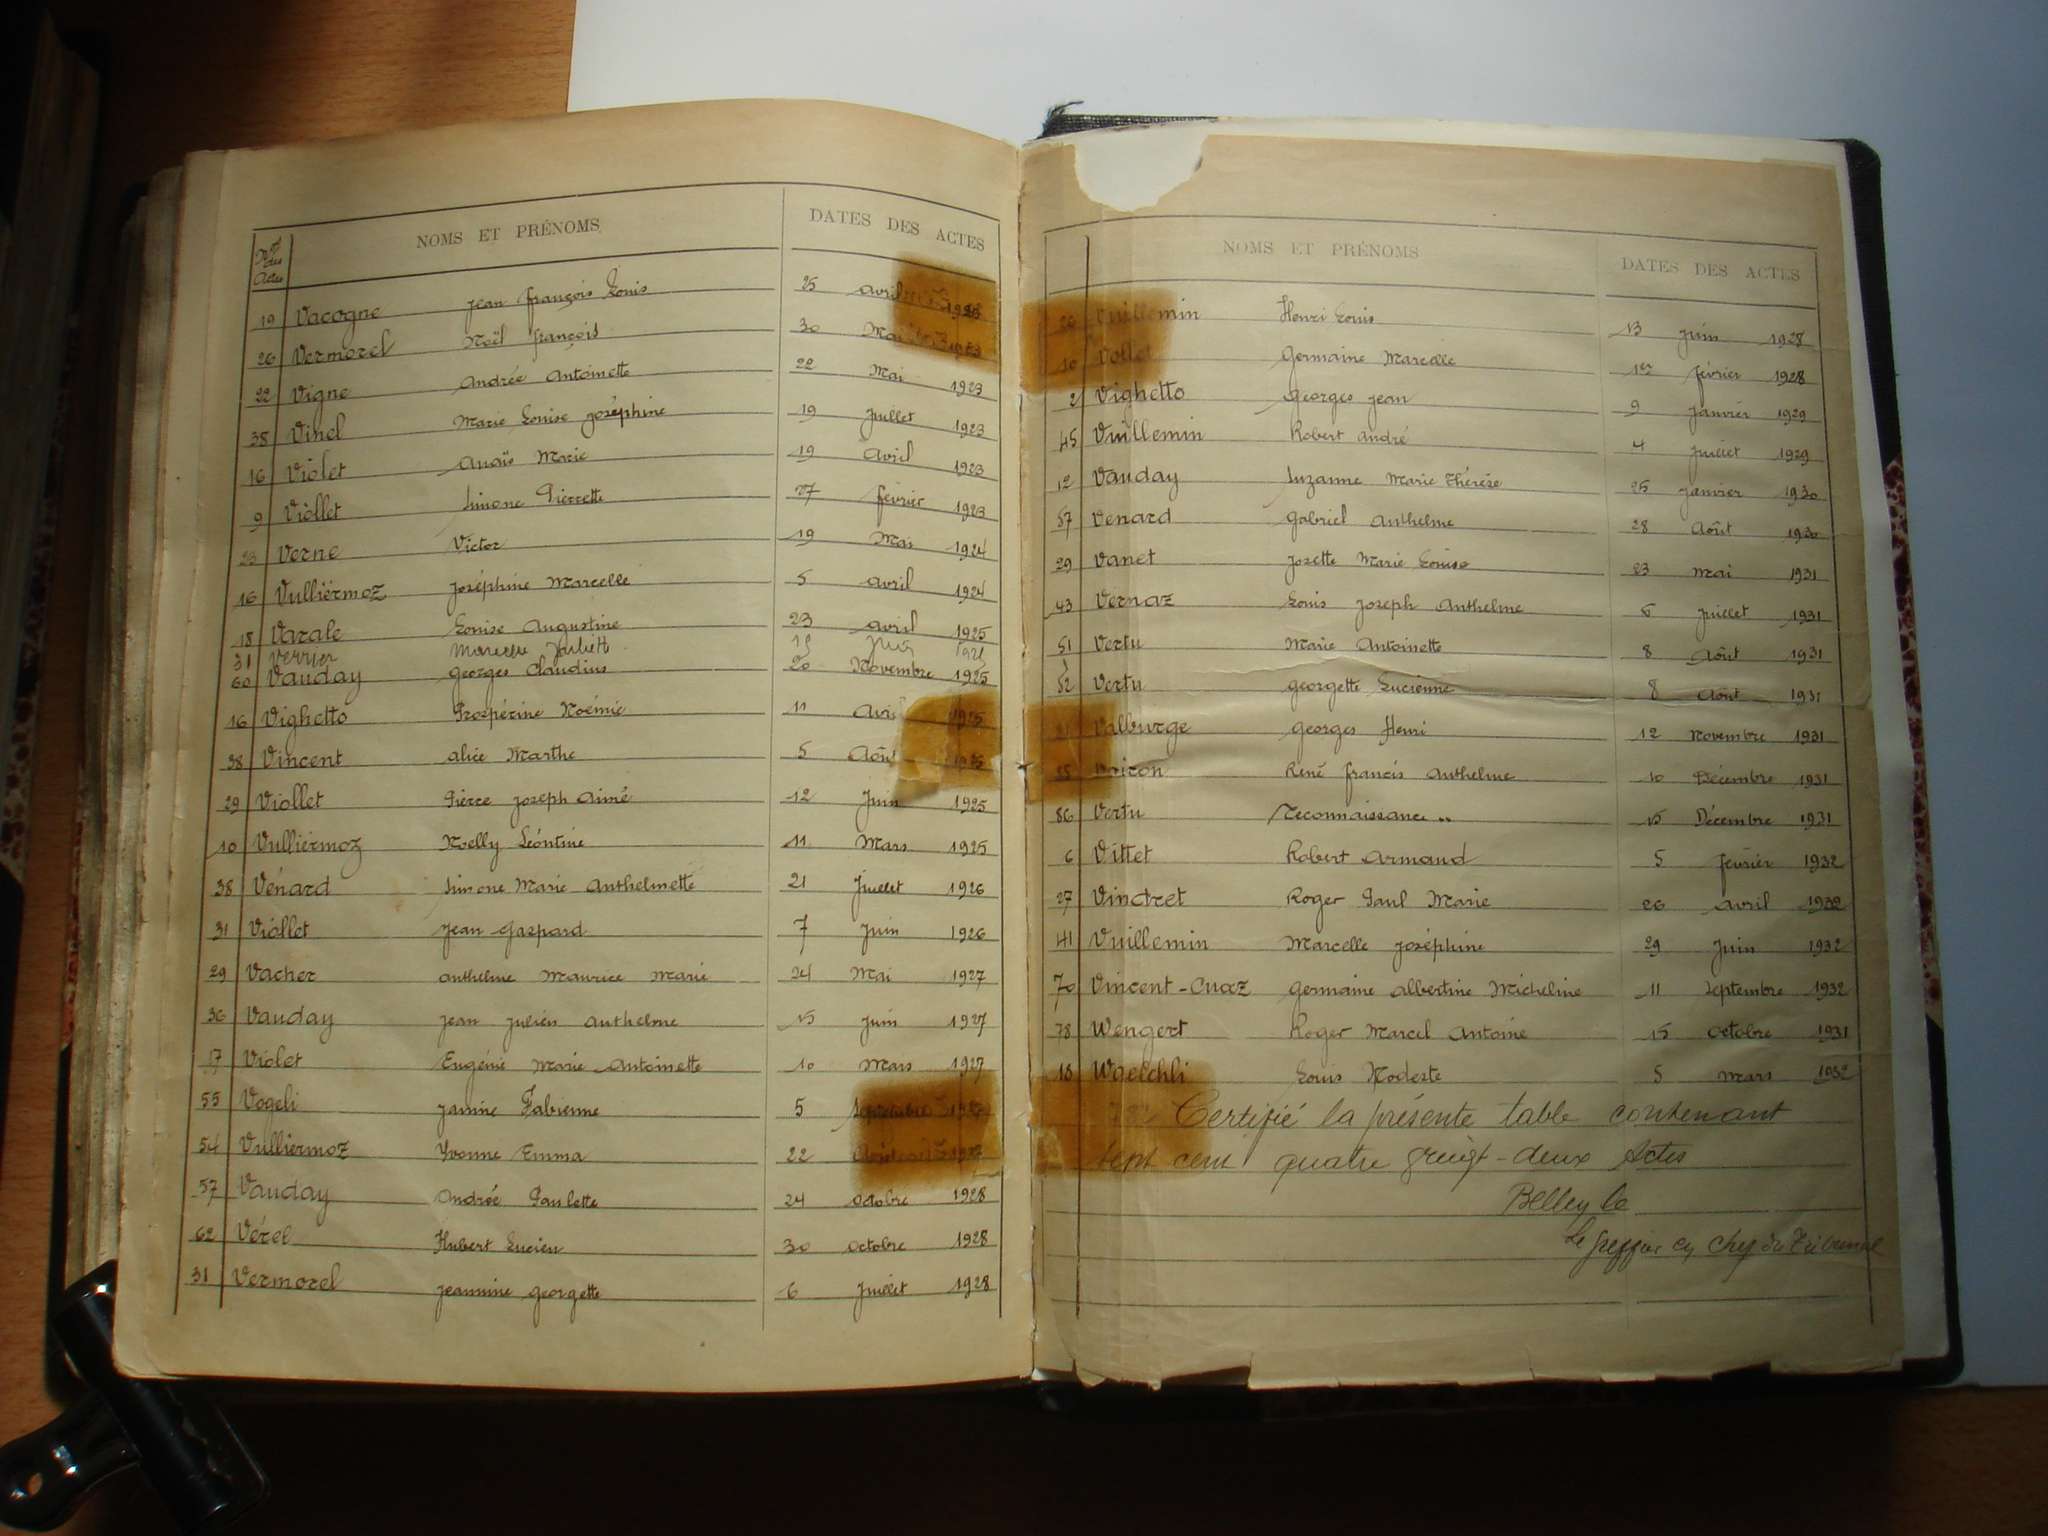 Nos des Actes NOMS ET PRÉNOMS DATES DES ACTES
19 Vacogne Jean François Louis 25 avril
26 Vermorel Noël François 30 Mai
22 Vigne Andrée Antoinette 22 Mai 1923
35 Vinel Marie Louise Joséphine 19 Juillet 1923
16 Violet Anaïs Marie 19 Avril 1923
9 Viollet Simone Pierrette 27 février 1923
23 Verne Victor 19 Mai 1924
16 Vulliermoz Joséphine Marcelle 5 avril 1924
18 Varale Louise Augustine 23 avril 1925
31 Verrier Marcelle Juliett Juin
60 Vauday Georges Claudius 20 Novembre 1925
16 Vighetto Prospérine Noémie 11 Avril 1925
38 Vincent Alice Marthe 5 Août 1925
29 Viollet Pierre Joseph Aimé 12 Juin 1925
10 Vulliermoz Noelly Léontine 11 Mars 1925
38 Vénard Simone Marie Anthelmette 21 Juillet 1926
31 Viollet Jean Gaspard 7 Juin 1926
29 Vacher Anthelme Maurice Marie 24 Mai 1927
36 Vauday Jean Julien Anthelme 15 Juin 1927
17 Violet Eugénie Marie Antoinette 10 Mars 1927
55 Vogeli Janine Fabienne 5 Septembre
54 Vulliermoz Yvonne Emma 22
57 Vauday Andrée Paulette 24 octobre 1928
62 Vérel Hubert Lucien 30 octobre 1928
31 Vermorel Jeannine Georgette 6 Juillet 1928
NOMS ET PRÉNOMS DATES DES ACTES
Vuillemin Henri Louis 13 Juin 1928
10 Vollet Germaine Marcelle 1er février 1928
2 Vighetto Georges Jean 9 Janvier 1929
45 Vuillemin Robert André 4 Juillet 1929
12 Vauday Suzanne Marie Thérèse 25 Janvier 1930
57 Venard Gabriel Anthelme 28 Août 1930
29 Vanet Josette Marie Louise 23 Mai 1931
43 Vernaz Louis Joseph Anthelme 6 Juillet 1931
51 Vertu Marie Antoinette 8 Août 1931
52 Vertu Georgette Lucienne 8 Août 1931
Valburge Georges Henri 12 Novembre 1931
Voiron René Francis Anthelme 10 Décembre 1931
86 Vertu Reconnaissance .. 15 Décembre 1931
6 Vittet Robert Armand 5 février 1932
27 Vinctret Roger Paul Marie 26 avril 1932
41 Vuillemin Marcelle Joséphine 29 Juin 1932
70 Vincent-Cuaz Germaine Albertine Micheline 11 Septembre 1932
78 Wengert Roger Marcel Antoine 15 octobre 1931
18 Waelchli Louis Modeste 5 Mars 1932
Certifié la présente table contenant
sept cent quatre vingt-deux Actes
Belley le
Le Greffier en chef du Tribunal